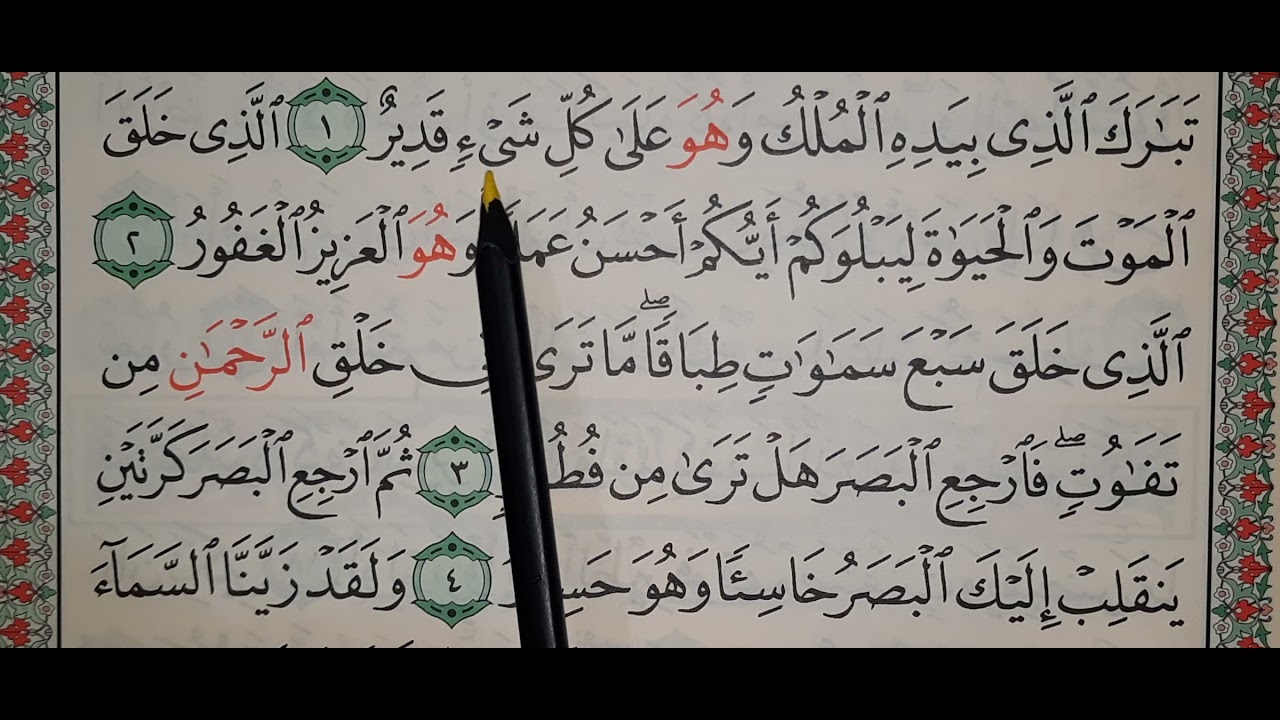 تَبَٰرَكَ ٱلَّذِى بِيَدِهِ ٱلْمُلْكُ وَهُوَ عَلَىٰ كُلِّ شَىْءٍ قَدِيرٌ ١ ٱلَّذِى خَلَقَ
ٱلْمَوْتَ وَٱلْحَيَوٰةَ لِيَبْلُوَكُمْ أَيُّكُمْ أَحْسَنُ وَهُوَ ٱلْعَزِيزُ ٱلْغَفُورُ ٢
ٱلَّذِى خَلَقَ سَبْعَ سَمَٰوَٰتٍ طِبَاقًا ۖ مَّا تَرَىٰ خَلْقِ ٱلرَّحْمَٰنِ مِن
تَفَٰوُتٍ ۖ فَٱرْجِعِ ٱلْبَصَرَ هَلْ تَرَىٰ مِن ٣ ثُمَّ ٱرْجِعِ ٱلْبَصَرَ كَرَّتَيْنِ
يَنقَلِبْ إِلَيْكَ ٱلْبَصَرُ خَاسِئًا وَهُوَ ٤ وَلَقَدْ زَيَّنَّا ٱلسَّمَآءَ